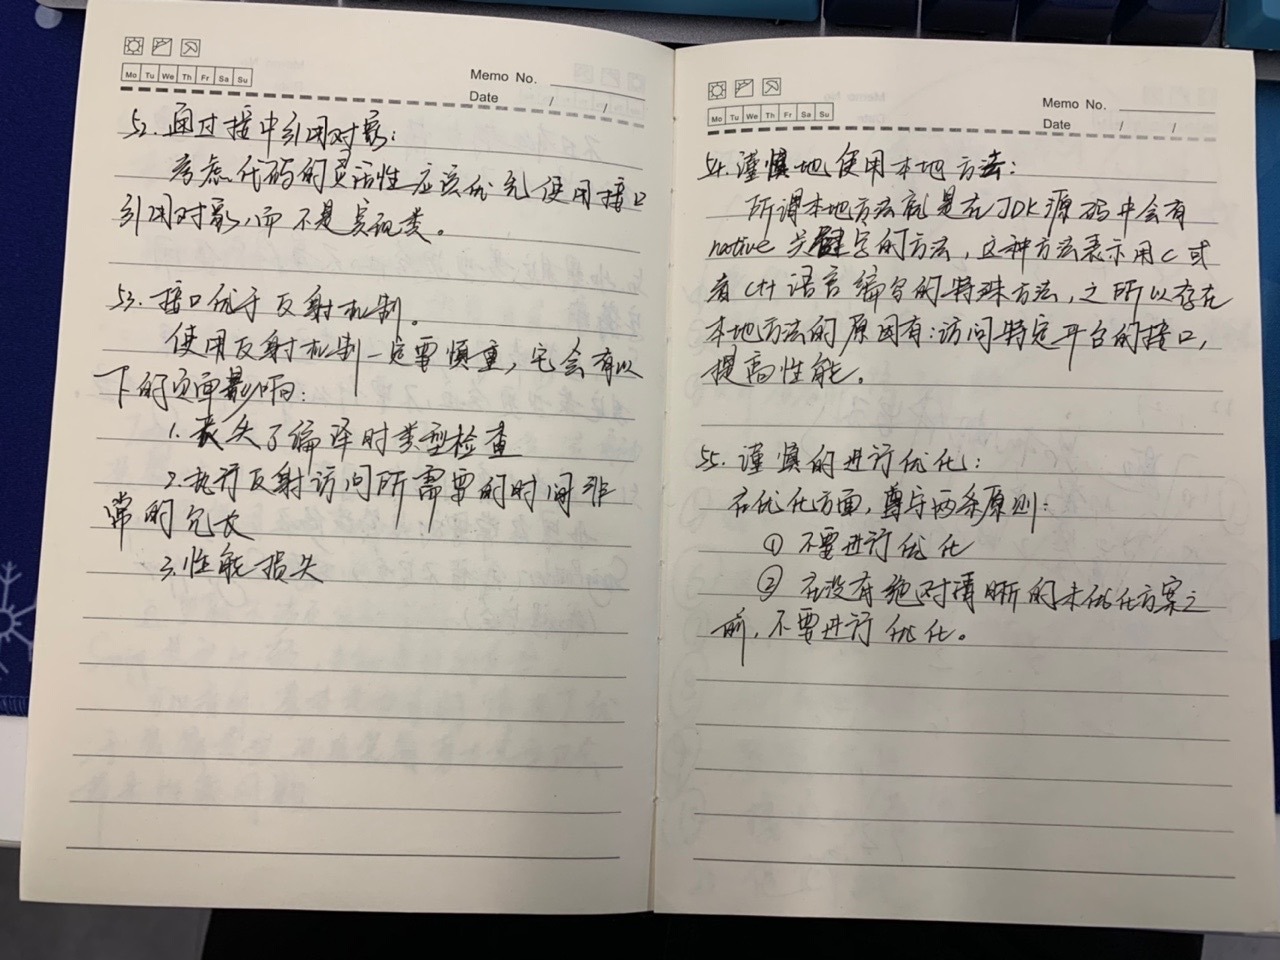 Mo Tu We Th Fr Sa Su
Memo No.
Date / /
52. 通过接口引用对象:
考虑代码的灵活性应该优先使用接口
引用对象,而不是实现类。
53. 接口优于反射机制。
使用反射机制一定要慎重,它会有以
下的负面影响:
1. 丧失了编译时类型检查
2. 执行反射访问所需要的时间非
常的冗长
3. 性能损失
Mo Tu We Th Fr Sa Su
Memo No.
Date / /
54. 谨慎地使用本地方法:
所谓本地方法就是在JDK源码中会有
native 关键字的方法,这种方法表示用C或
者C++语言编写的特殊方法,之所以存在
本地方法的原因有:访问特定平台的接口,
提高性能。
55. 谨慎的进行优化:
在优化方面,遵守两条原则:
① 不要进行优化
② 在没有绝对清晰的未优化方案之
前,不要进行优化。